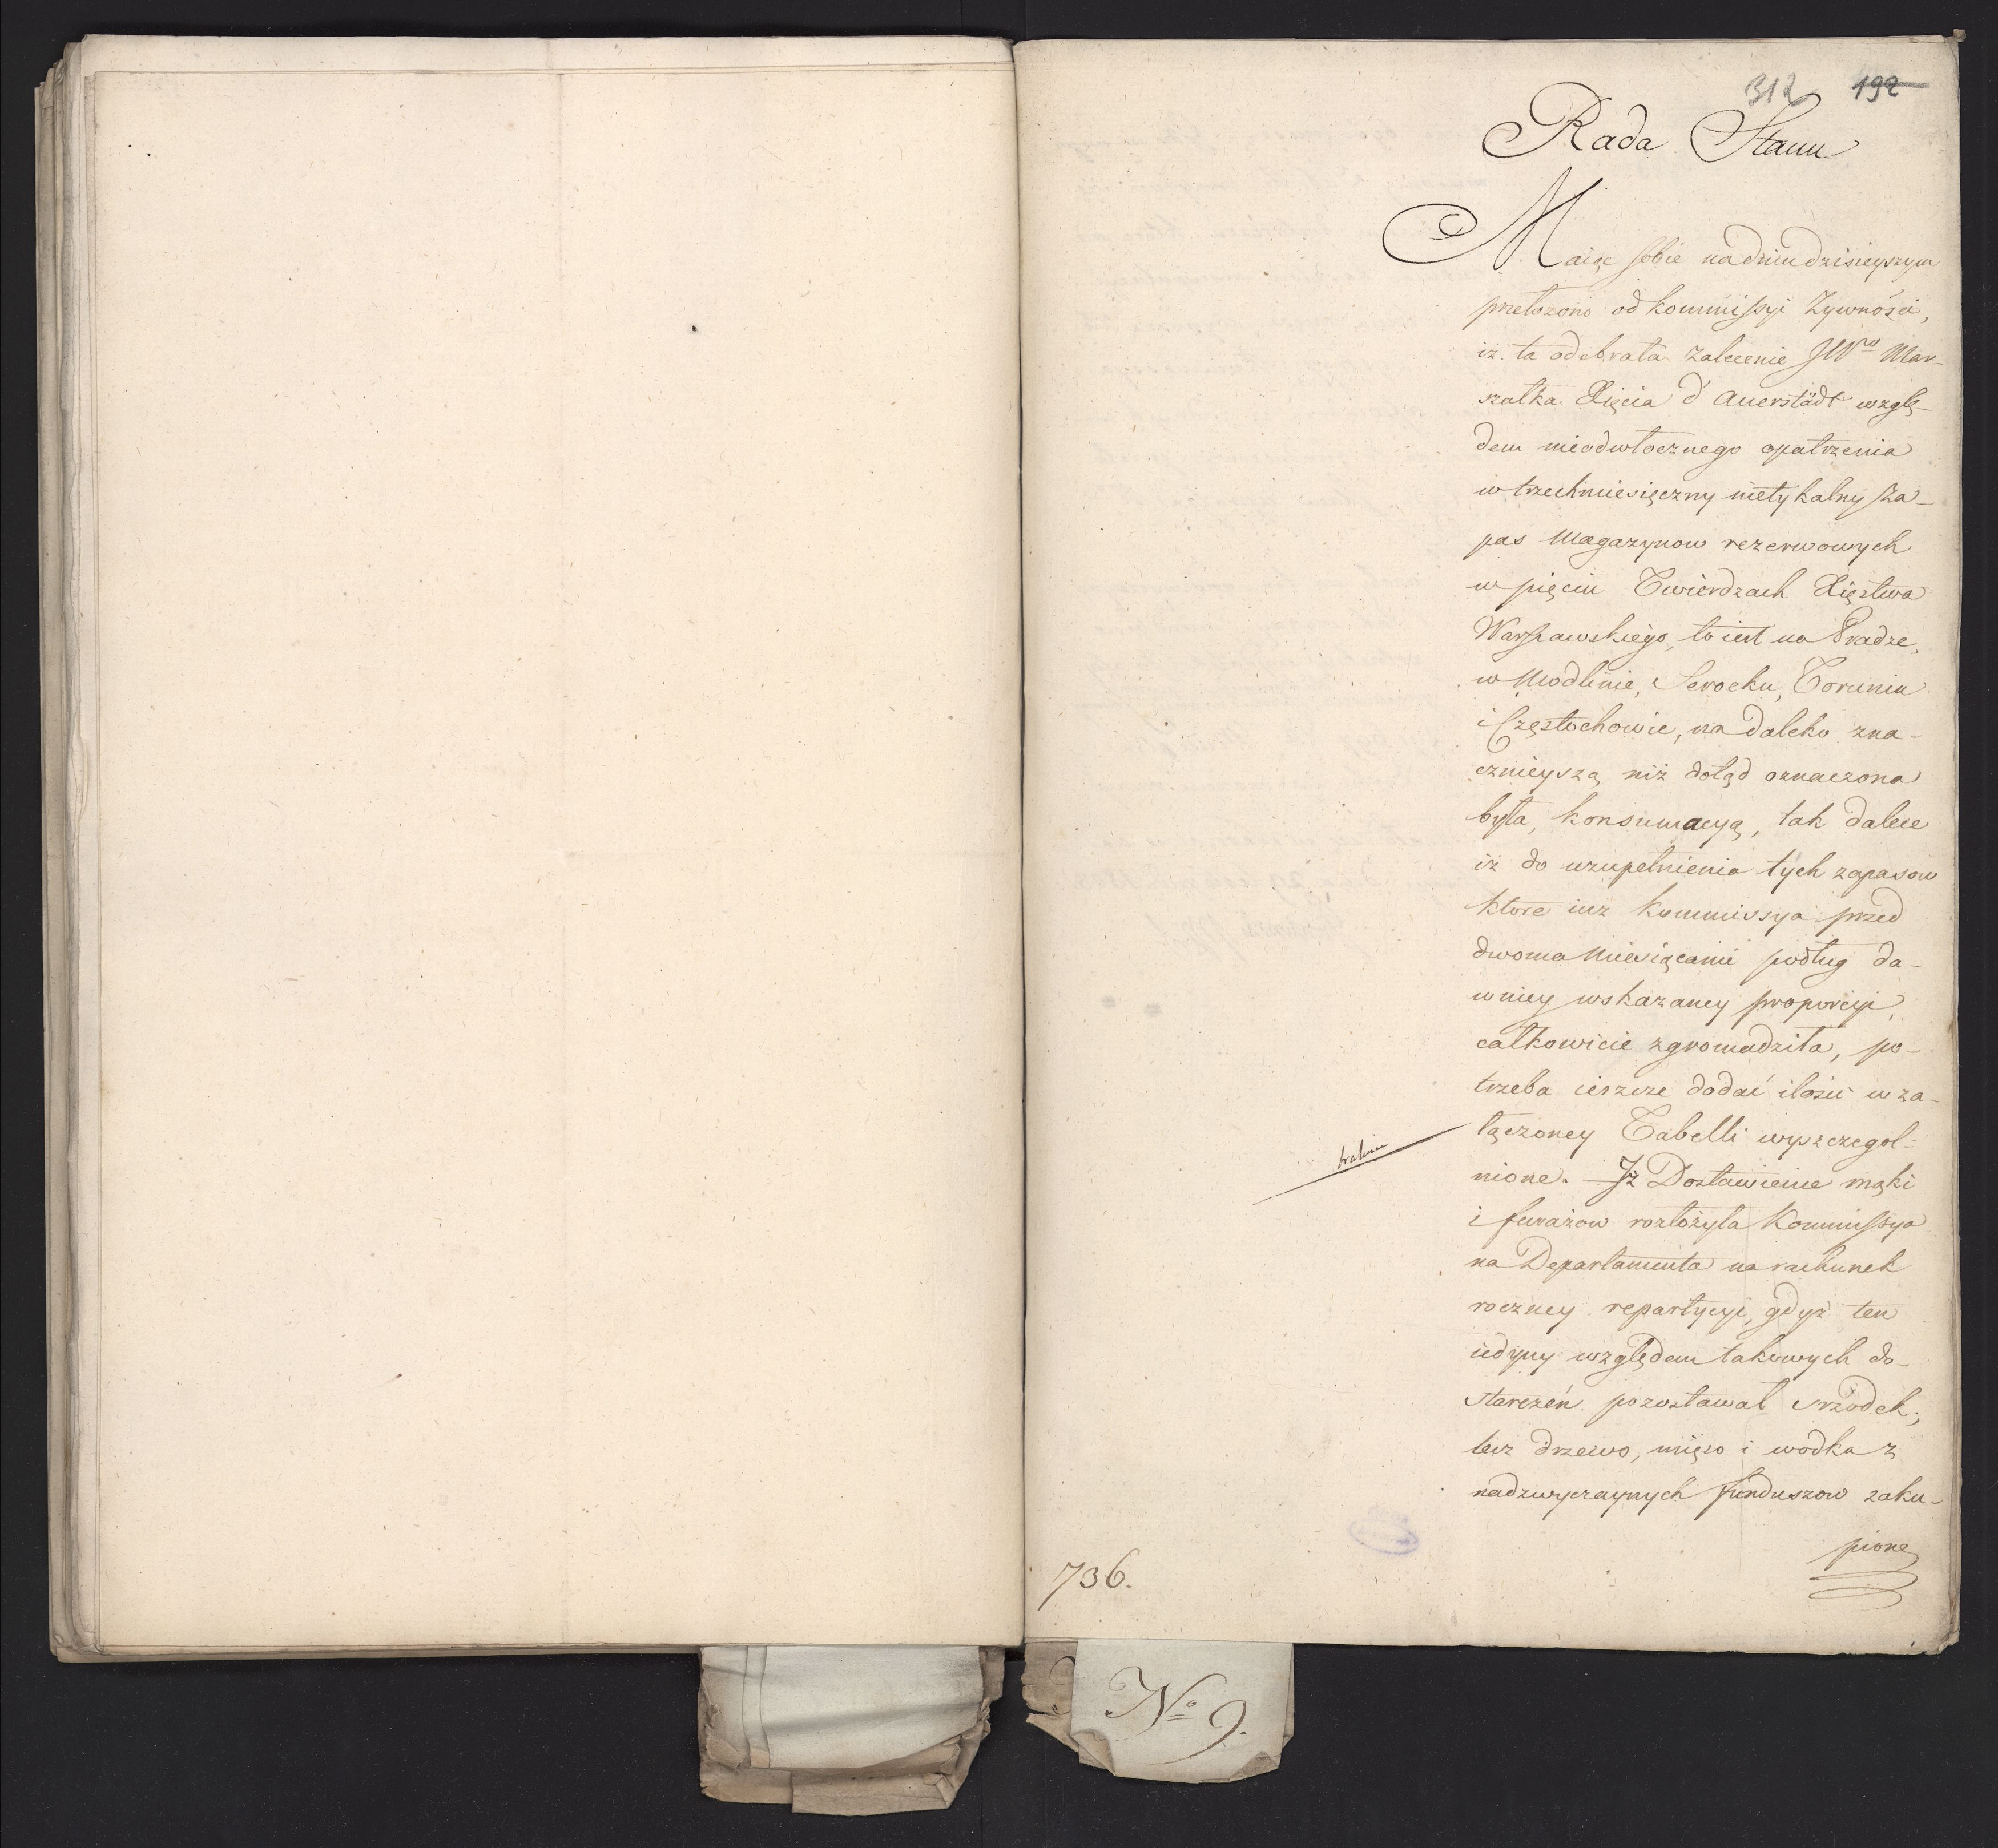 312 192
Rada Stanu
Maiąc sobie na dniu dzisieyszym
przełożono od Kommissyi Żywności,
iż ta odebrała zalecenie JWgo Mar-
szałka Xięcia d'Auerstädt wzglę-
dem nieodwłocznego opatrzenia
w trzechmiesięczny nietykalny za-
pas Magazynow rezerwowych
w pięciu Twierdzach Xięstwa
Warszawskiego, to iest na Pradze,
w Modlinie, Serocku, Toruniu
i Częstochowie, na daleko zna-
cznieyszą niż dotąd oznaczona
była, konsumacyą, tak dalece
iż do uzupełnienia tych zapasow
które iuż Kommissya przed
dwoma Miesiącami podług da-
wniey wskazaney proporcyi,
całkowicie zgromadziła, po-
trzeba ieszcze dodać ilości w za-
łączoney Tabelli wyszczegól-
nione. – Iż Dostawienie mąki
i furażow rozłożyła Kommissya
na Departamenta na rachunek
roczney repartycyi, gdyż ten
iedyny względem takowych do-
starczeń pozostawał srzodek;
lecz drzewo, mięso i wodka z
nadzwyczaynych funduszow zaku-
pione
736.
No 9.